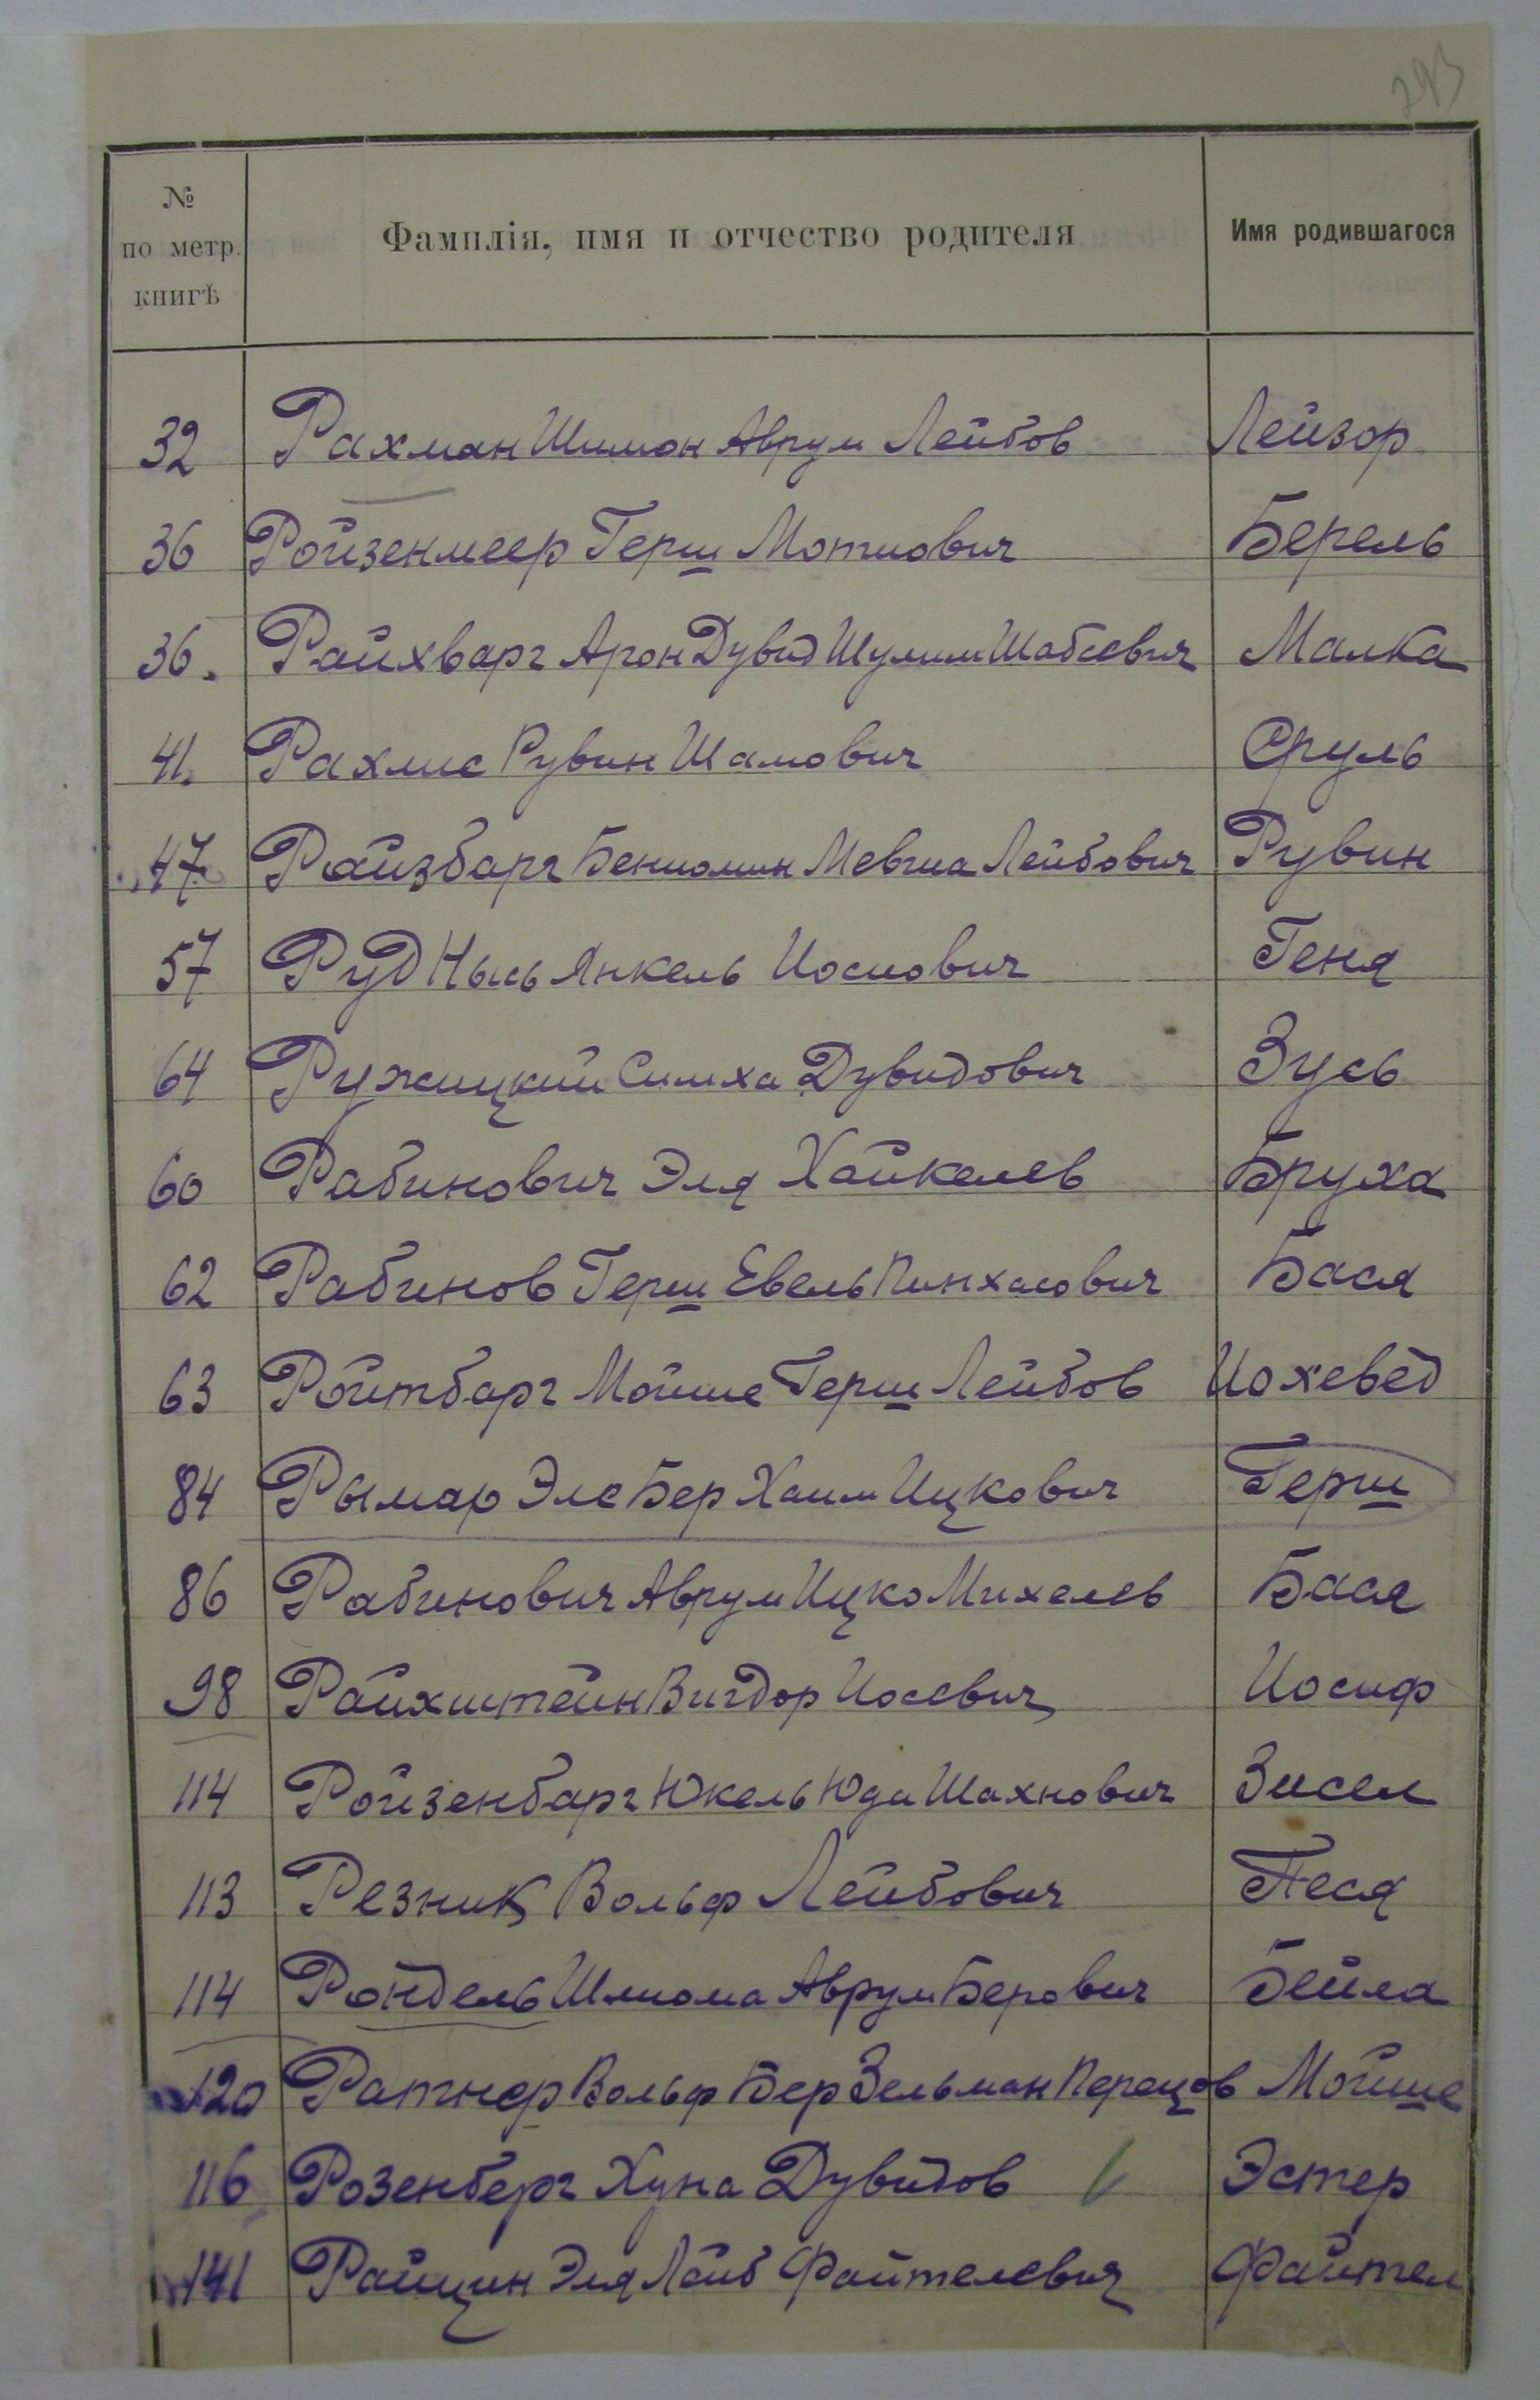 293
№ по метр. книгѣ Фамилія, имя и отчество родителя Имя родившагося
32 Рахман Шимон Аврум Лейбов Лейзор
36 Ройзенмеер Герш Мотиович Берель
36. Райхварг Арон Дувид Шулим Шабсевич Малка
41. Рахлис Рувин Шамович Сруль
47 Райзбарг Бениомин Мевша Лейбович Рувин
57 Руд Нысь Янкель Иосиович Геня
64 Ружицкий Симха Дувидович Зусь
60 Рабинович Эля Хайкелев Бруха
62 Рабинов Герш Евель Пинхасович Бася
63 Ройтбарг Мойше Герш Лейбов Иохевед
84 Рымар Эле Бер Хаим Ицкович Герш
86 Рабинович Аврум Ицко Михелев Бася
98 Райхштейн Вигдор Иосевич Иосиф
114 Ройзенбарг Юкель Юда Шахнович Зисел
113 Резник Вольф Лейбович Песя
114 Рондель Шлиома Аврум Берович Бейла
120 Ратнер Вольф Бер Зельман Перецов Мойше
116 Розенберг Хуна Дувидов Эстер
141 Райцин Эля Лейб Файтелевич Файтел